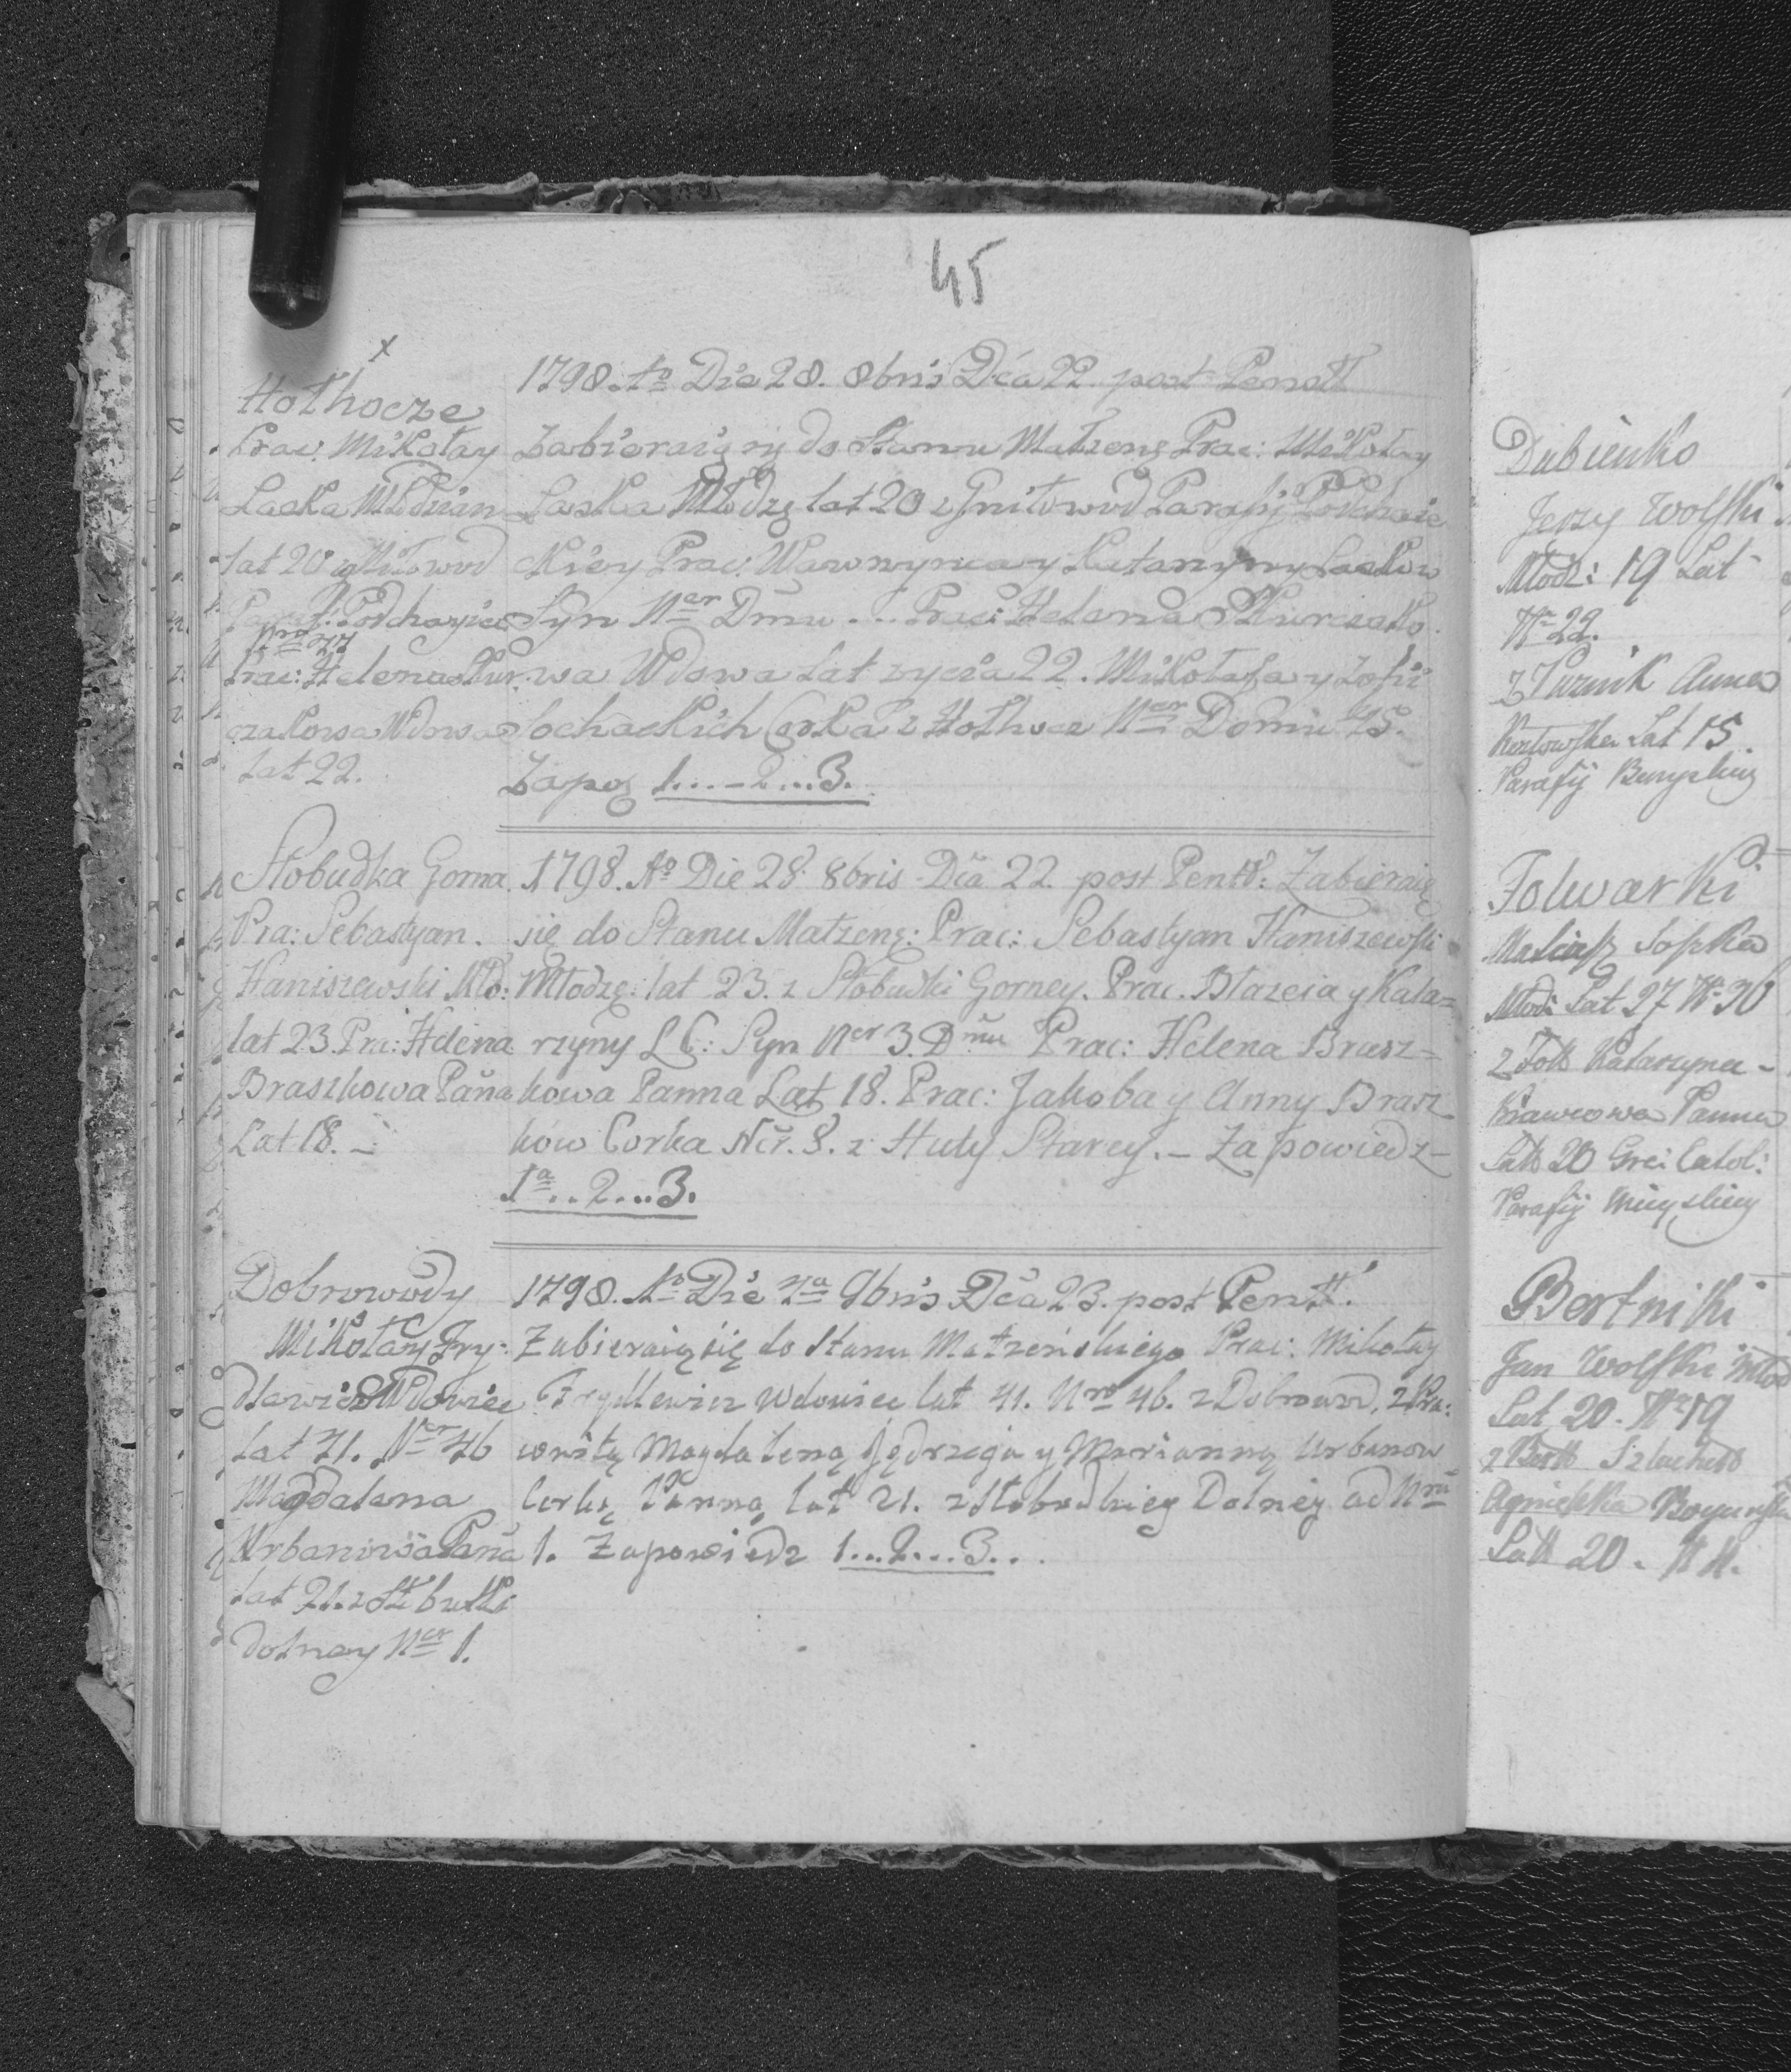 45
x
Hołhocze
Prac: Mikołay
Laska Młodzian
lat 20 z Gniłowod
Paraf: Podhayiec
Nro 77
Prac: Helena Skur
czakowa Wdowa
lat 22.
1798. Ao Die 28. 8bris Dca 22 post Pentt
Zabieraią się do Stanu Małzenę Prac: Mikołay
Laska Młodzę lat 20 z Gniłowod Parafij Podhaie
ckiey Prac: Wawrzynca y Katarzyny Lasków
Syn Ner Dmu ... Prac: Helena Skurczako.
wa Wdowa Lat zycia 22. Mikołaja y Zofii
Sochackich Corka z Hołhocz Ner Domu 45.
Zapo 1....-2...3.
Słobudka Gorna
Pra: Sebastyan.
Haniszewski Mło:
lat 23. Pra: Helena
Braszkowa Pana
Lat 18. -
1798. Ao Die 28. 8bris Dca 22. post Pentt: Zabieraią
się do Stanu Małzenę: Prac: Sebastyan Haniszewski
Młodzę: lat 23. z Słobudki Gorney. Prac. Błazeia y Kata=
rzyny LC: Syn Ner 3. Dmu Prac: Helena Brasz=
kowa Panna Lat 18. Prac: Jakoba y Anny Brasz
ków Corka Ner. 8. z Huty Starey. - Zapowiedz-
1a..2...3.
Dobrowody
Mikołay Fry:
dlewicz Wdowiec
lat 41. Nro 46
Magdalena
Urbanowa Pana
lat 21. z Słobutki
dolney Ner 1.
1798. Ao Die 4a 9bris Dca 23. post Pentt.
Zabieraią się do Stanu Małzeńskiego Prac: Mikołay
Frydlewicz Wdowiec lat 41. Nro 46. z Dobrowod, z Pra:
cowitą Magdaleną Jędrzeja y Marianny Urbanow
Corką Panną lat 21. z Słobudkiey Dolney ad Nru
1. Zapowiedz 1...2...3..
Dubienko
Jerzy Wolski
Młodz: 19 Lat
Nr 22.
Anna
Lat 15.
Parafij
Folwarki
Sopka
Młodz Lat 27 Nr 30
z Folw Katarzyna -
Krawcowa Panna
Latt 20 Gre: Catol:
Parafij
Bertniki
Jan Wolski Młod
Lat 20. Nr 19
z Bertt
Agnieszka
Latt 20.